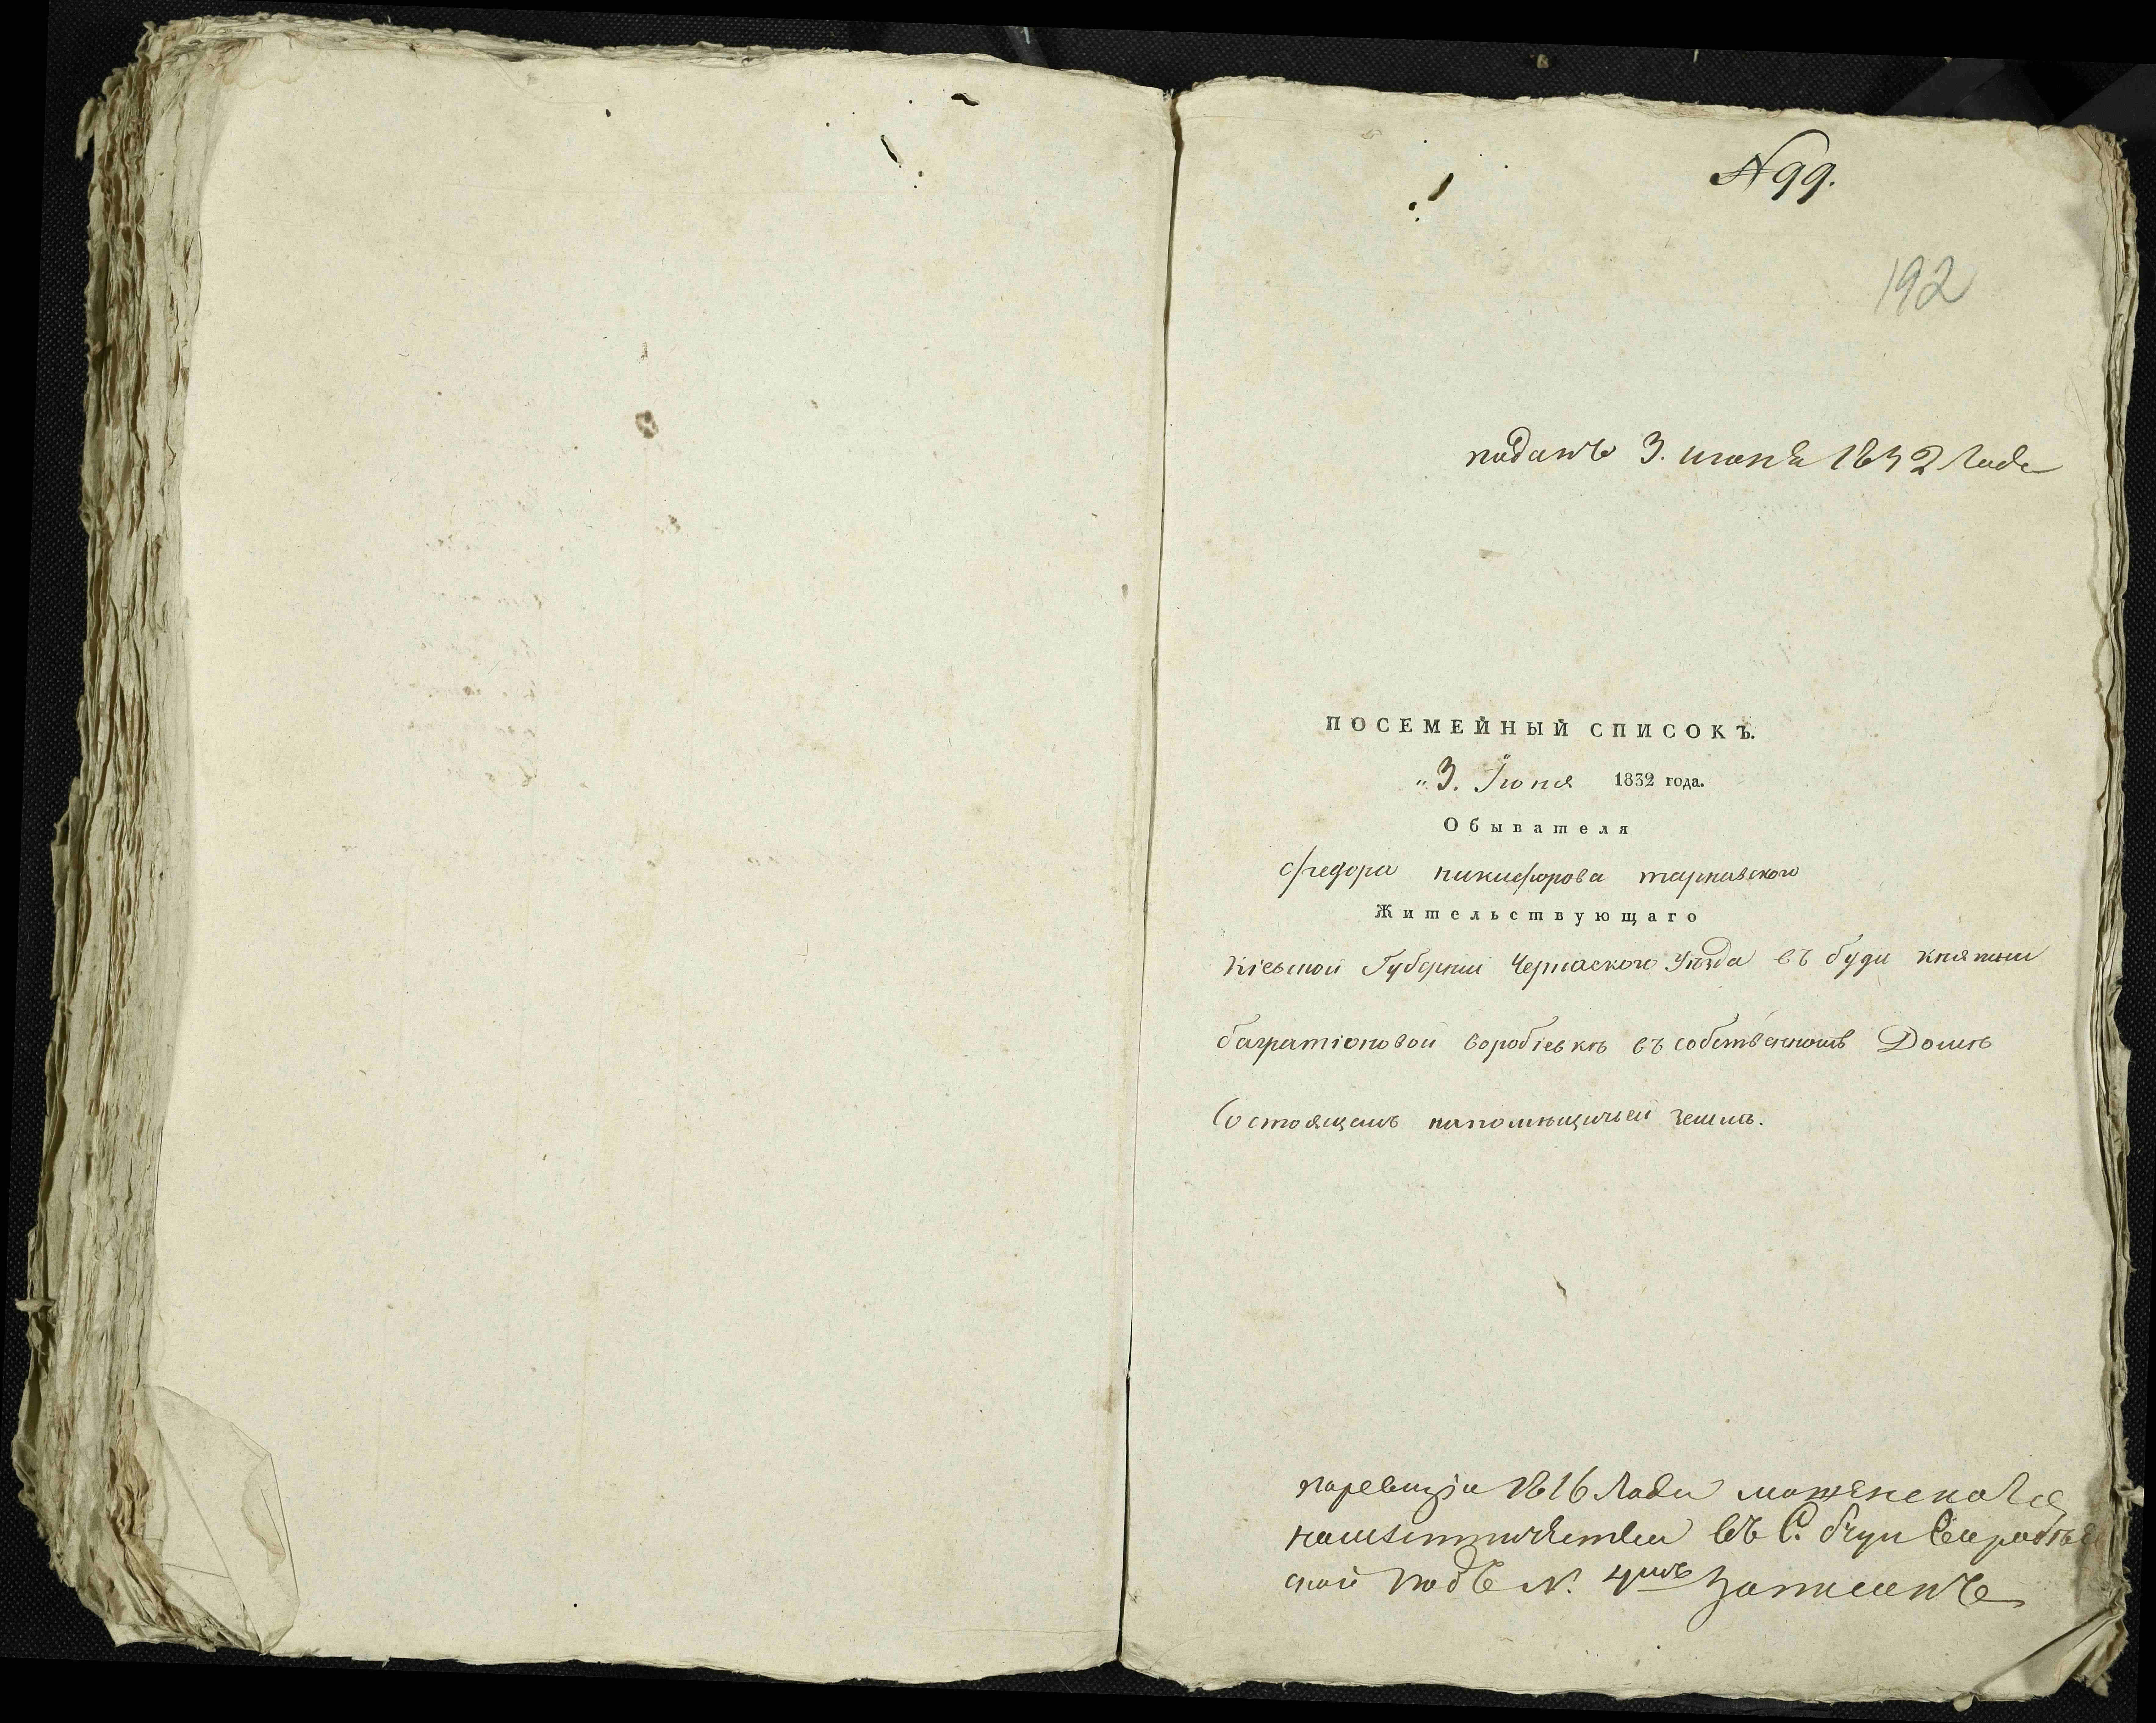 N 99.
192
поданъ 3. июня 1832 Года
ПОСЕМЕЙНЫЙ СПИСОКЪ.
„3. Іюня 1832 года.
Обывателя
федора никифорова тарнавского
Жительствующаго
Кіевской Губерніи Черкаского Уезда въ буди княгини
багратіоновой воробіевкѣ въ собственномъ Домѣ
Состоящемъ напомѣщичьей землѣ.
поревизіи 1816 Года
въ С. буди
ской подъ N. 4мъ записанъ